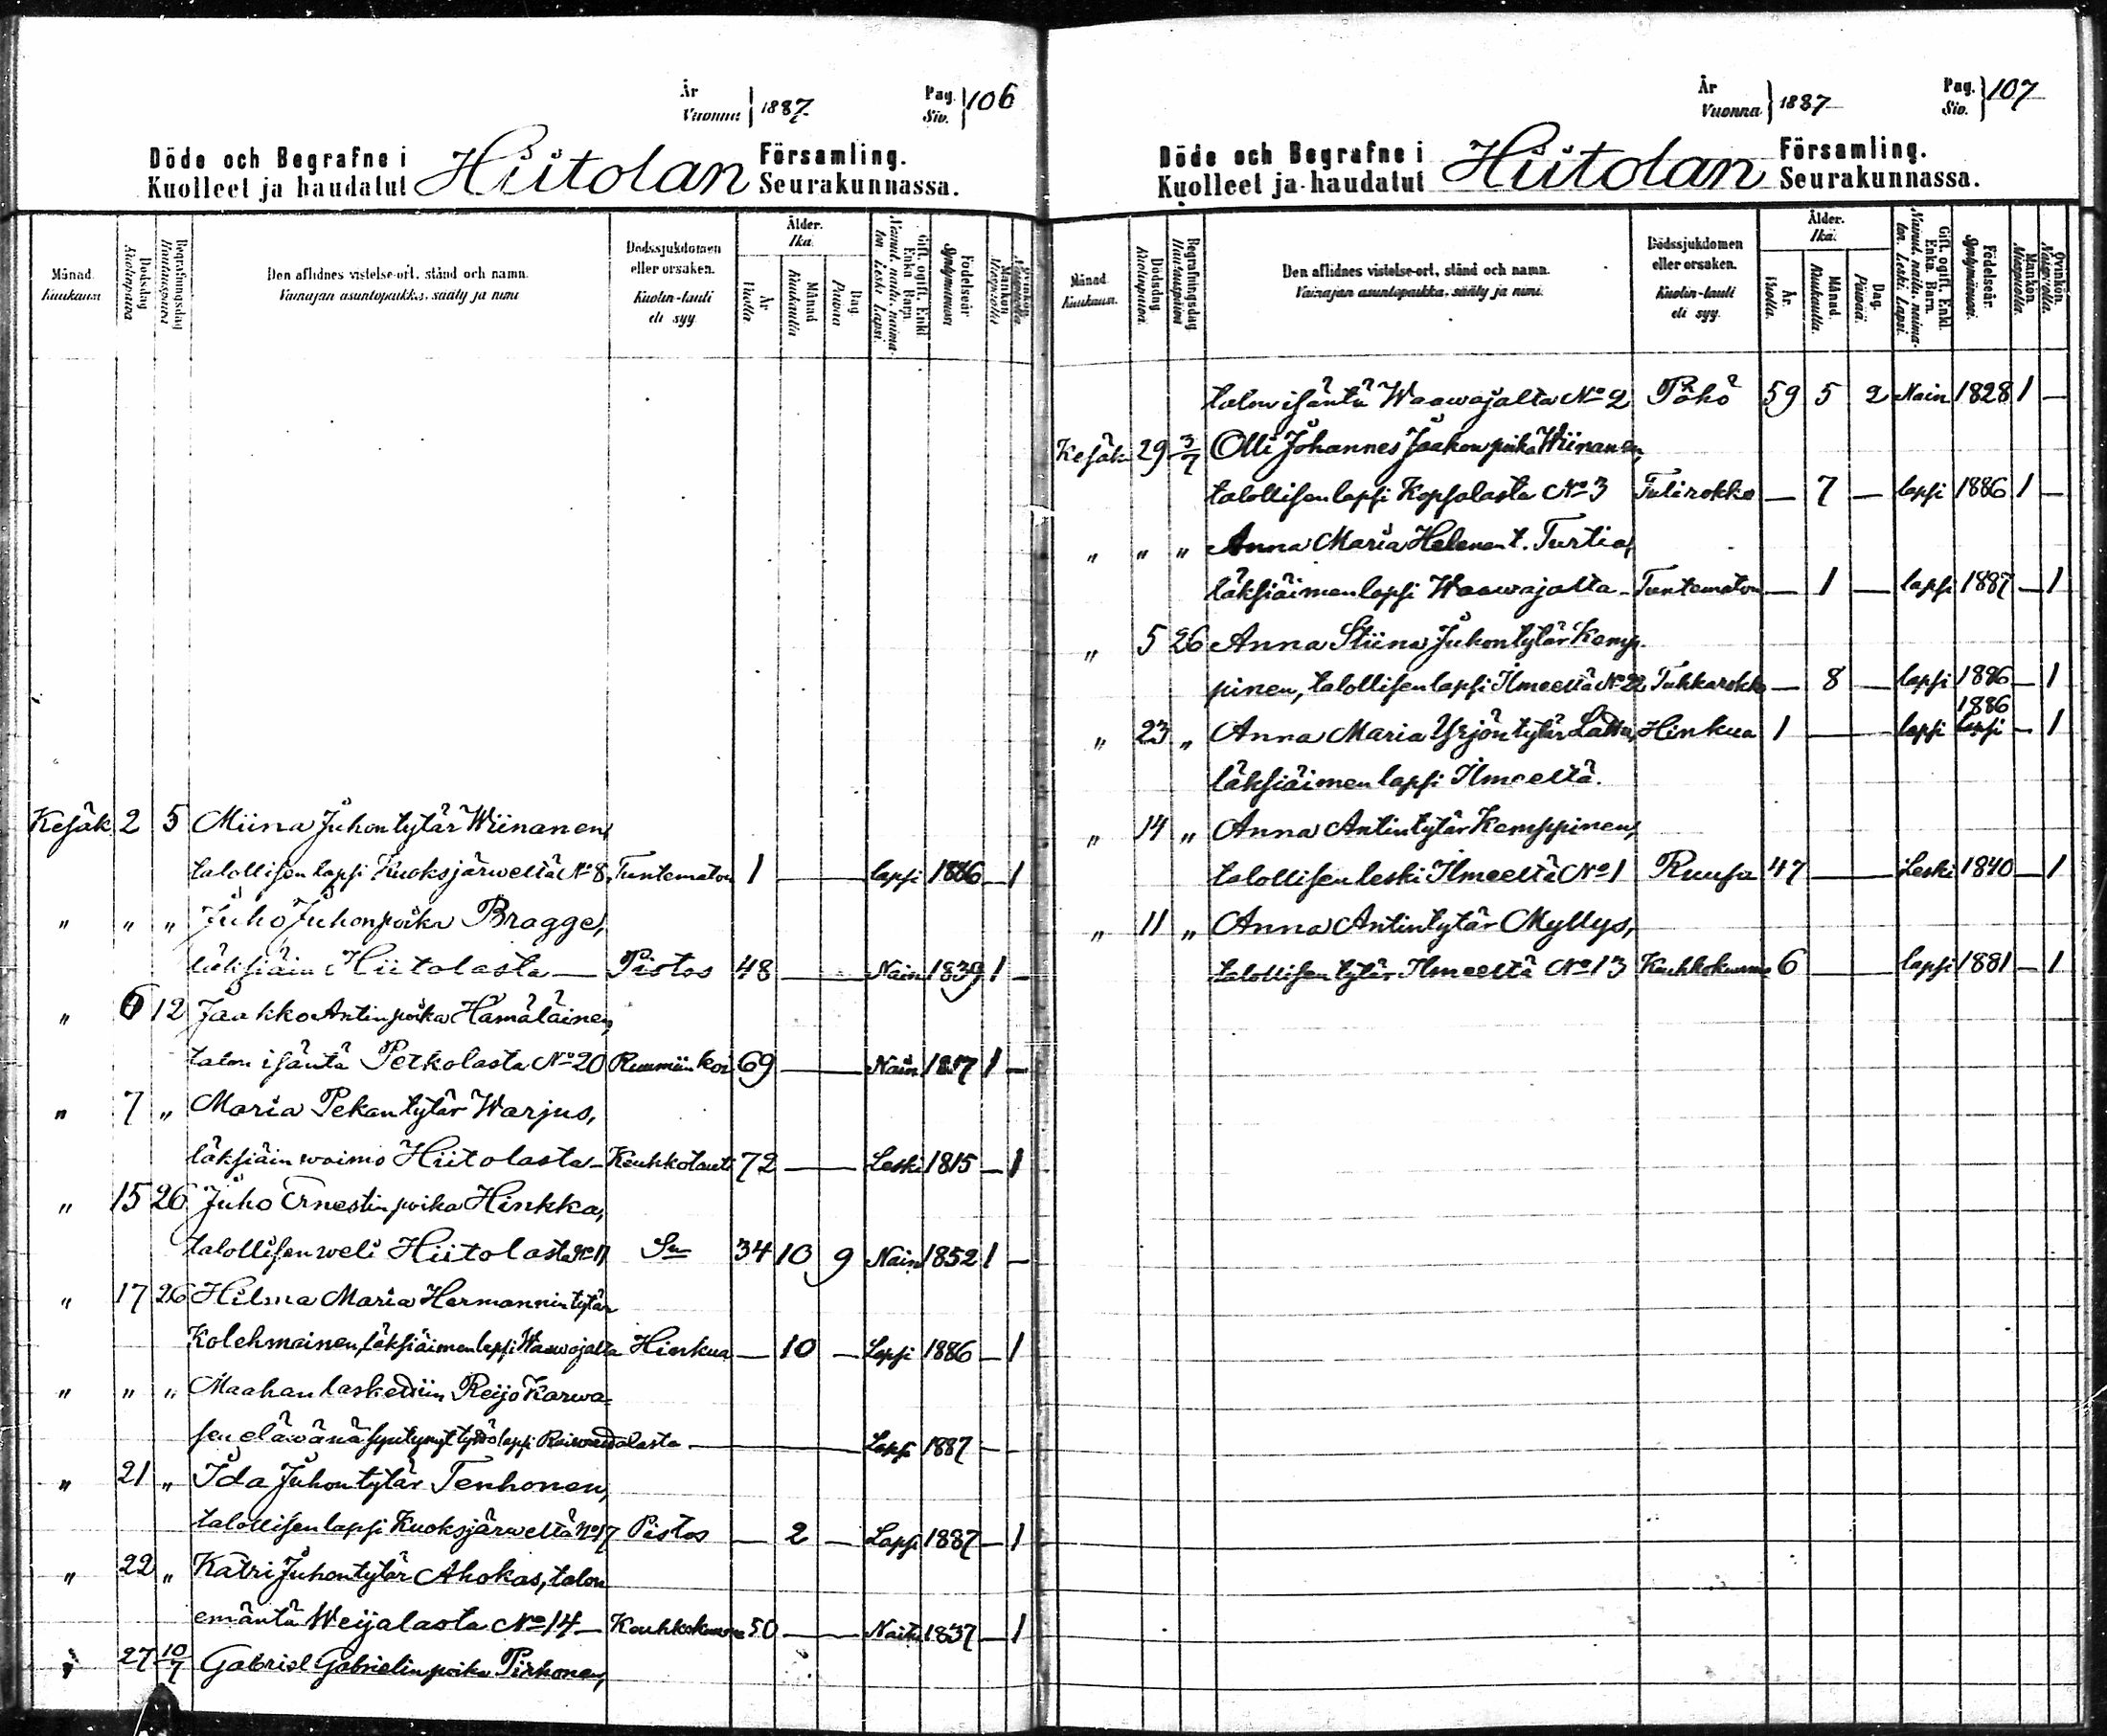 År
Vuonna } 1887
Pag.
Siv. } 106
Döde och Begrafne i Hiitolan Församling.
Kuolleet ja haudatut Seurakunnassa.
Månad. Kuukausi
Dödsdag Kuolinpäivä
Begrafningsdag Hautauspäivä
Den aflidnes vistelse-ort, stånd och namn.
Vainajan asuntopaikka, sääty ja nimi
Dödssjukdomen eller orsaken.
Kuolin-tauti eli syy
Ålder. Ikä.
År Vuotta
Månad Kuukautta
Dag. Päivää
Gift, ogift. Enkl. Enka. Barn.
Nainut, naitu, naima-ton. Leski. Lapsi.
Födelseår Syntymävuosi
Mankön Miespuolia
Qvinkön. Naispuolia.
Kesäk. 2 5 Miina Juhontytär Wiinanen,
talollisen lapsi Kuoksjärweltä No 8. Tuntematon 1 — lapsi 1886 — 1
" " " Juho Juhonpoika Bragge,
läksiäin Hiitolasta — Pistos 48 — Nain 1839 1 —
" 6 12 Jaakko Antinpoika Hämäläinen,
talon isäntä Petkolasta No 20 Ruumiin koi 69 — Nain 1817 1 —
" 7 " Maria Pekantytär Warjus,
läksiäin waimo Hiitolasta — Keuhkotauti 72 — Leski 1815 — 1
" 15 26 Juho Ernestinpoika Hinkka,
talollisen weli Hiitolasta No 17 Sn 34 10 9 Nain 1852 1 —
" 17 26 Hilma Maria Hermannintytär
Kolehmainen, läksiäimen lapsi Waawajalta Hinkua — 10 — Lapsi 1886 — 1
" " " Maahan laskettiin Reijo Karwa-
sen eläwänä syntynyt tyttö lapsi Raiwattalasta — Lapsi 1887 —
" 21 " Ida Juhontytär Tenhonen,
talollisen lapsi Kuoksjärweltä No 17 Pistos — 2 — Lapsi 1887 — 1
" 22 " Katri Juhontytär Ahokas, talon
emäntä Weijalasta No 14 — Keuhkokuume 50 — Naitu 1837 — 1
" 27 10/7 Gabriel Gabrielinpoika Pirhonen,
År
Vuonna } 1887
Pag.
Siv. } 107
Döde och Begrafne i Hiitolan Församling.
Kuolleet ja haudatut Seurakunnassa.
Månad. Kuukausi.
Dödsdag. Kuolinpäivä.
Begrafningsdag Hautauspäivä
Den aflidnes vistelse-ort, stånd och namn.
Vainajan asuntopaikka, sääty ja nimi.
Dödssjukdomen eller orsaken.
Kuolin-tauti eli syy.
Ålder. Ikä.
År. Vuotta.
Månad Kuukautta.
Dag. Päivää.
Gift, ogift. Enkl. Enka. Barn.
Nainut, naitu, naima-ton. Leski. Lapsi.
Födelseår. Syntymävuosi.
Mankön. Miespuolia.
Qvinkön. Naispuolia.
talon isäntä Waawajalta No 2 Pöhö 59 5 2 Nain 1828 1 —
Kesäk 29 3/7 Olli Johannes Jaakonpoika Wiinanen,
talollisen lapsi Kopsalasta No 3 Tulirokko — 7 — lapsi 1886 1 —
" " " Anna Maria Helenan t. Turtia,
läksiäimen lapsi Waawajalta — Tuntematon — 1 — lapsi 1887 — 1
" 5 26 Anna Stiina Juhontytär Kemp-
pinen, talollisen lapsi Ilmeeltä No 22 Tuhkarokko — 8 — lapsi 1886 — 1
1886
" 23 " Anna Maria Yrjöntytär Lattu, Hinkua 1 — lapsi lapsi — 1
läksiäimen lapsi Ilmeeltä.
" 14 " Anna Antintytär Kemppinen,
talollisen leski Ilmeeltä No 1 Ruusa 47 — Leski 1840 — 1
" 11 " Anna Antintytär Myllys,
talollisen tytär Ilmeeltä No 13 Keuhkokuume 6 — lapsi 1881 — 1